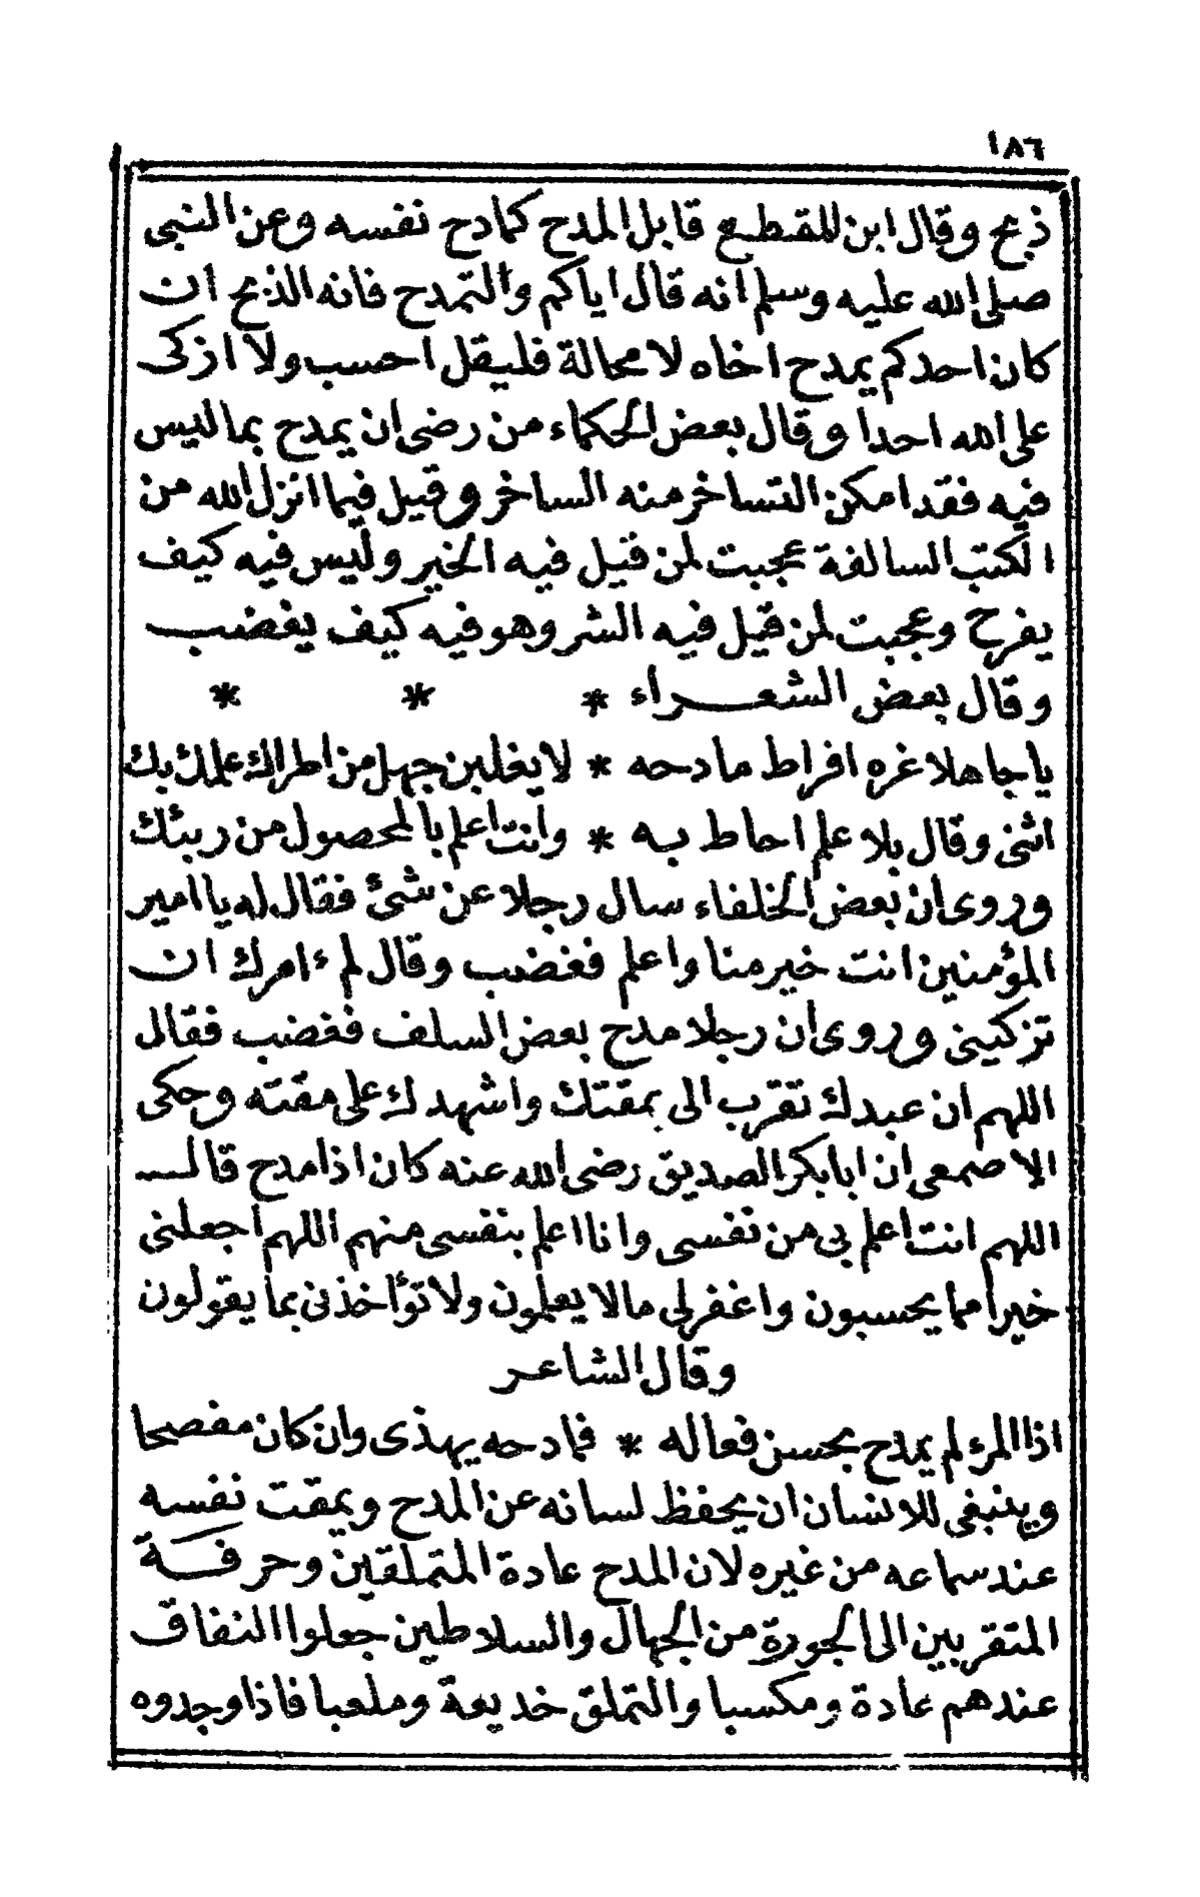 ١٨٦
ذبح وقال ابن المقطع قابل المدح كمادح نفسه وعن النبى
صلى الله عليه وسلم انه قال اياكم والتمدح فانه الذبح ان
كان احدكم يمدح اخاه لا محالة فليقل احسب ولا ازكى
على الله احدا وقال بعض الحكماء من رضى ان يمدح بما ليس
فيه فقد امكن التساخر منه الساخر وقيل فيما انزل الله من
الكتب السالفة عجبت لمن قيل فيه الخير وليس فيه كيف
يفرح وعجبت لمن قيل فيه الشر وهو فيه كيف يغضب
وقال بعض الشعراء * * *
يا جاهلا غره افراط مادحه * لا يغلبن جهل من اطراك علمك بك
اثنى وقال بلا علم احاط به * وانت اعلم بالمحصول من ريبتك
وروى ان بعض الخلفاء سال رجلا عن شئ فقال له يا امير
المؤمنين انت خير منا واعلم فغضب وقال لم ءامرك ان
تزكينى وروى ان رجلا مدح بعض السلف فغضب فقال
اللهم ان عبدك تقرب الى بمقتك واشهدك على مقته وحكى
الاصمعى ان ابا بكر الصديق رضى الله عنه كان اذا مدح قال
اللهم انت اعلم بى من نفسى وانا اعلم بنفسى منهم اللهم اجعلنى
خيرا مما يحسبون واغفر لى ما لا يعلمون ولا تؤاخذنى بما يقولون
وقال الشاعر
اذا المرء لم يمدح بحسن فعاله * فمادحه يهذى وان كان مفصحا
وينبغى للانسان ان يحفظ لسانه عن المدح ويمقت نفسه
عند سماعه من غيره لان المدح عادة المتملقين وحرفة
المتقربين الى الجورة من الجهال والسلاطين جعلوا النفاق
عندهم عادة ومكسبا والتملق خديعة وملعبا فاذا وجدوه